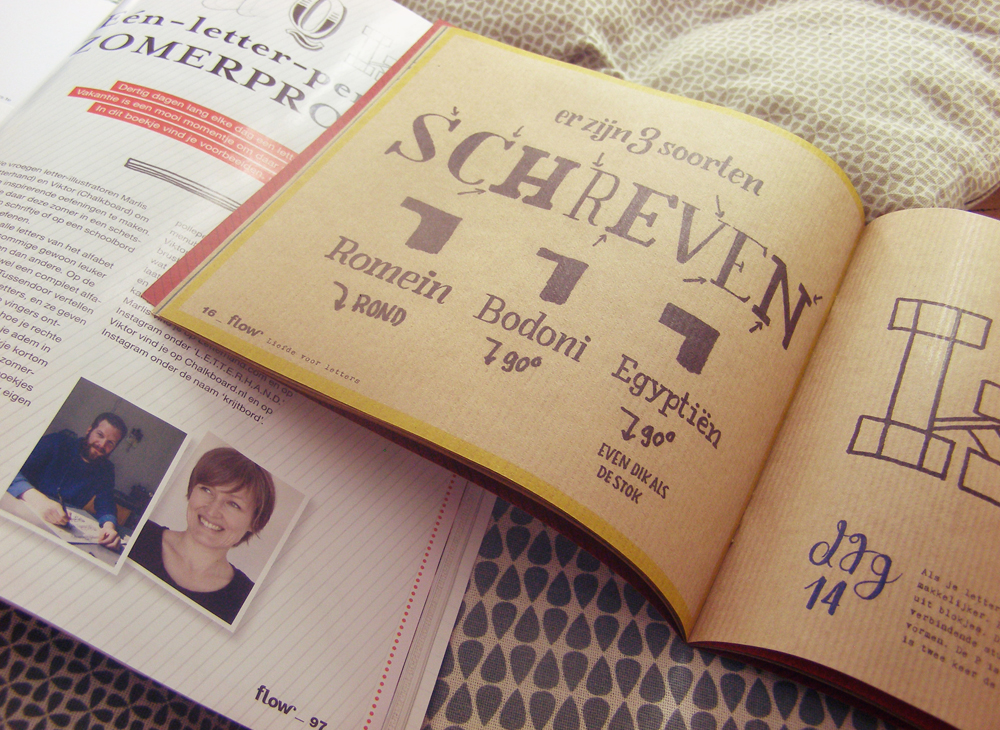 Q
Eén-letter-per
ZOMERPRO
Dertig dagen lang elke dag een lett
Vakantie is een mooi momentje om daar
In dit boekje vind je voorbeelden
e vroegen letter-illustratoren Marlis
terhand) en Viktor (Chalkboard) om
inspirerende oefeningen te maken.
daar deze zomer in een schets-
schriftje of op een schoolbord
efenen.
alle letters van het alfabet
ommige gewoon leuker
dan andere. Op de
wel een compleet alfa-
Tussendoor vertellen
etters, en ze geven
vingers ont-
hoe je rechte
e adem in
je kortom
zomer-
oekjes
eigen
Instagram onder 'L.E.T.T.E.R.H.A.N.D.'
Viktor vind je op Chalkboard.nl en op
Instagram onder de naam 'krijtbord'.
flow _ 97
er zijn 3 soorten
SCHREVEN
Romein
ROND
Bodoni
90°
Egyptiën
90°
EVEN DIK ALS
DE STOK
16 _ flow Liefde voor letters
dag
14
Als je lette
makkelijker.
uit blokjes.
verbindende
vormen. De
is twee keer de